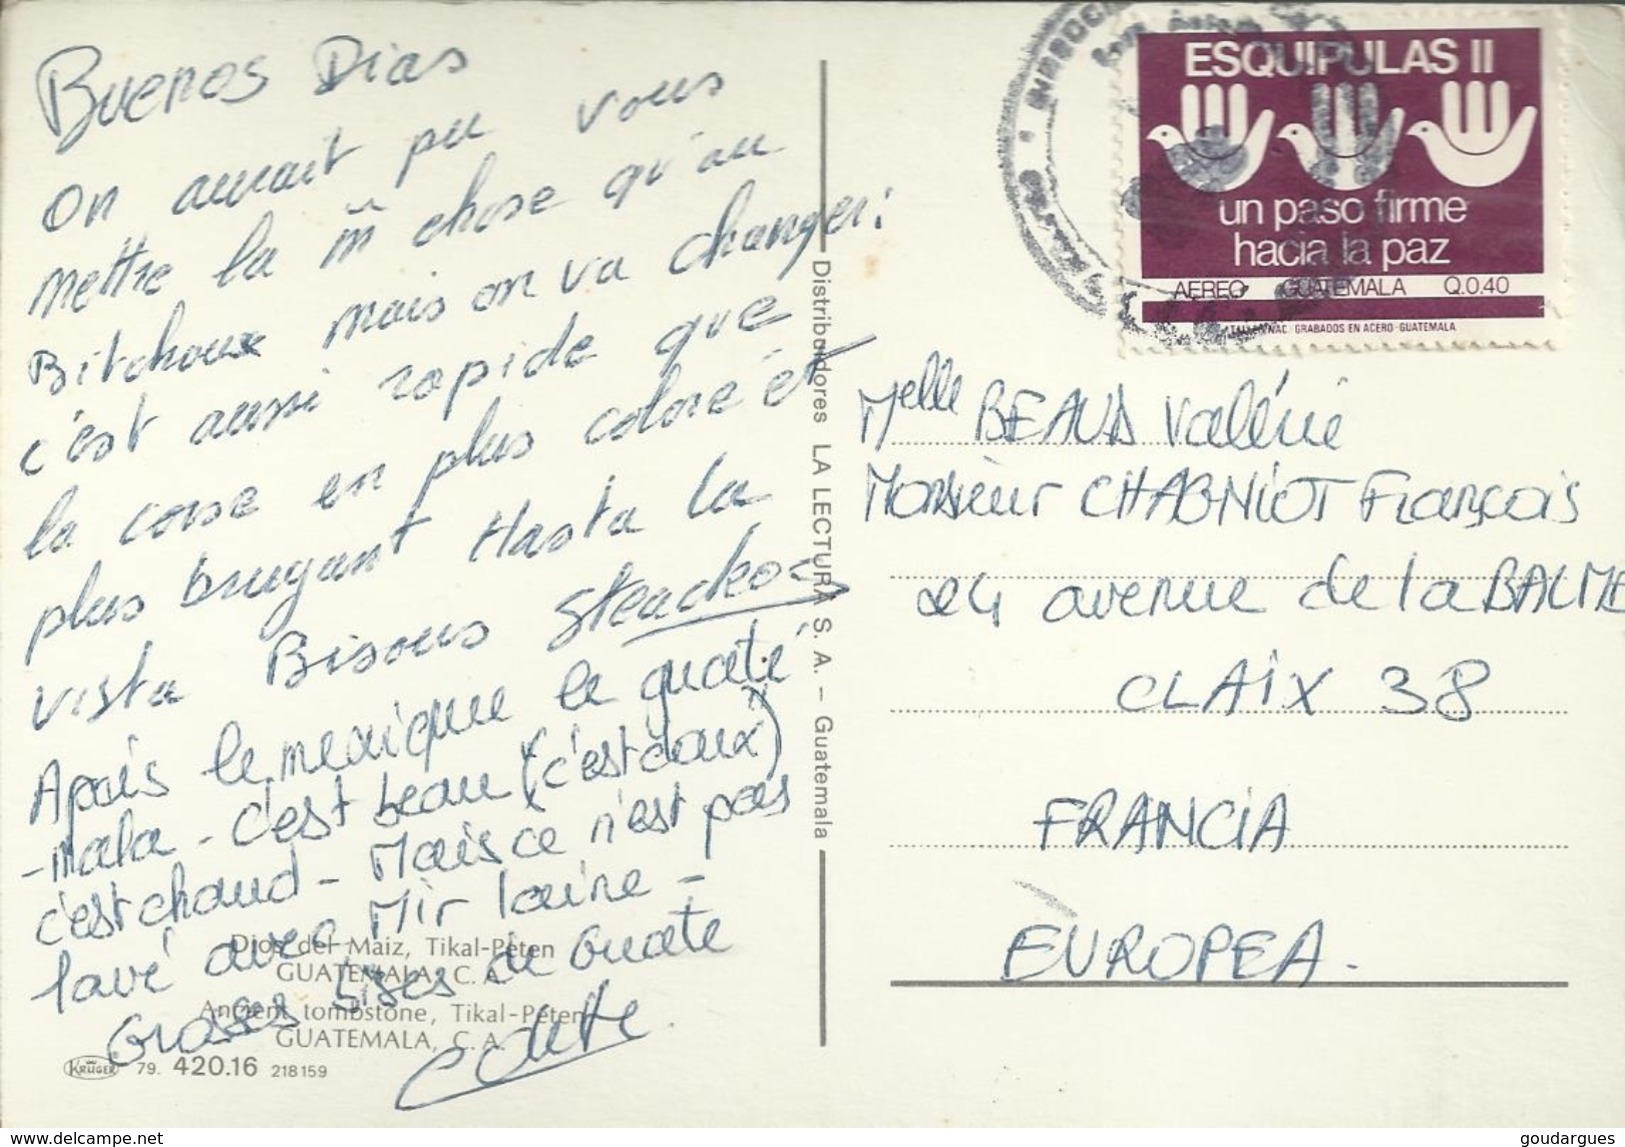 Buenos Dias
On aurait pu vous
mettre la m̃ chose qu'au
Bitchoux mais on va changer:
c'est aussi rapide que
la corse en plus coloré et
plus bruyant Hasta la
vista Bisous
Après le mexique le guaté
-mala - c'est beau (c'est doux)
c'est chaud - Mais ce n'est pas
lavé avec Mir laine -
Grosses bises du Guate
Dios del Maiz, Tikal-Peten
GUATEMALA, C. A.
Ancient tombstone, Tikal-Peten
GUATEMALA, C. A.
KRÜGER 79. 420.16 218159
Distribuidores LA LECTURA S. A. – Guatemala
ESQUIPULAS II
un paso firme
hacia la paz
AEREO GUATEMALA Q.0.40
TALLER NAC. GRABADOS EN ACERO-GUATEMALA
Melle BEAUD Valérie
Monsieur CHAGNIOT François
24 avenue de la BALME
CLAIX 38
FRANCIA
EUROPEA.
www.delcampe.net
goudargues